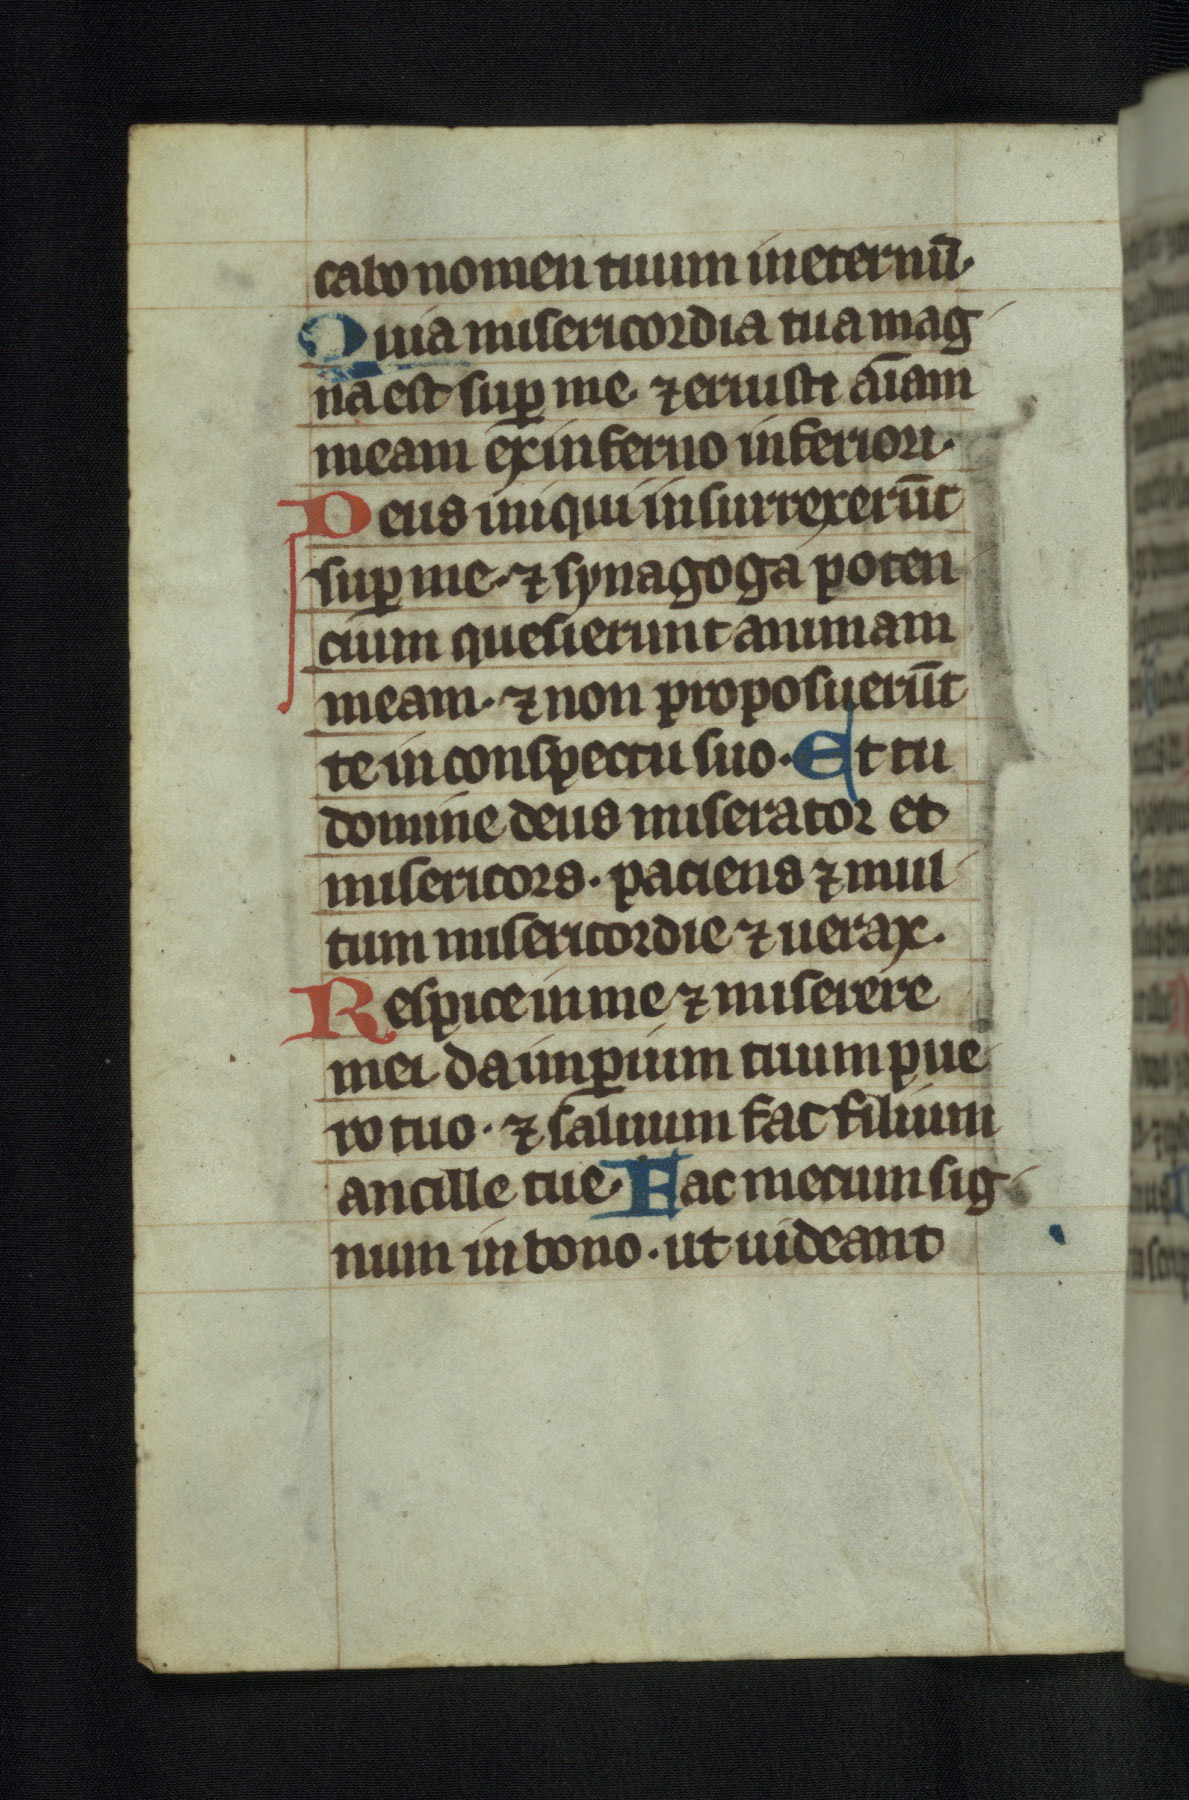 cabo nomen tuum in eternu̅.
Quia misericordia tua mag
na est sup̲ me. ⁊ eruisti ai̅am
meam ex inferno inferiori.
Deus iniqui insurrexeru̅t
sup̲ me. ⁊ synagoga poten
cium quesierunt animam
meam. ⁊ non proposueru̅t
te in conspectu suo. Et tu
domine deus miserator et
misericors. paciens ⁊ mul
tum misericordie ⁊ uerax.
Respice in me ⁊ miserere
mei da imp̲ium tuum pue
ro tuo. ⁊ saluum fac filium
ancille tue. Fac mecum sig
num in bono. ut uideant